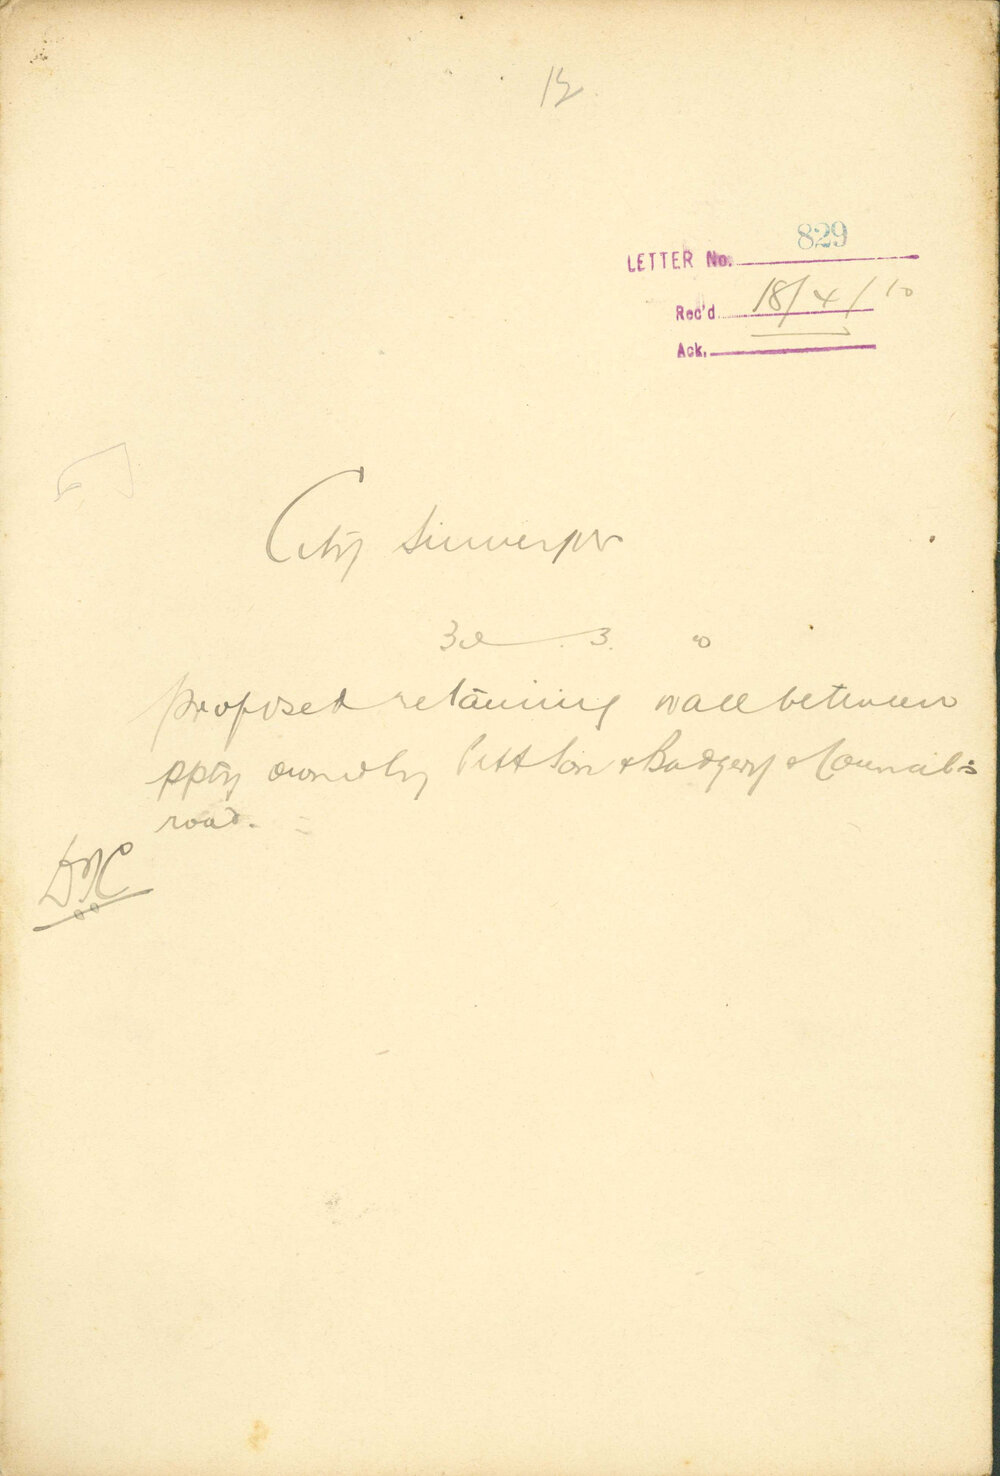 LETTER No. 829
Rec'd 18/4/10
Ack.
City Surveyor
3
proposed retaining wall between
ppty owned by Pitt Son & Badgery & Council's
road.